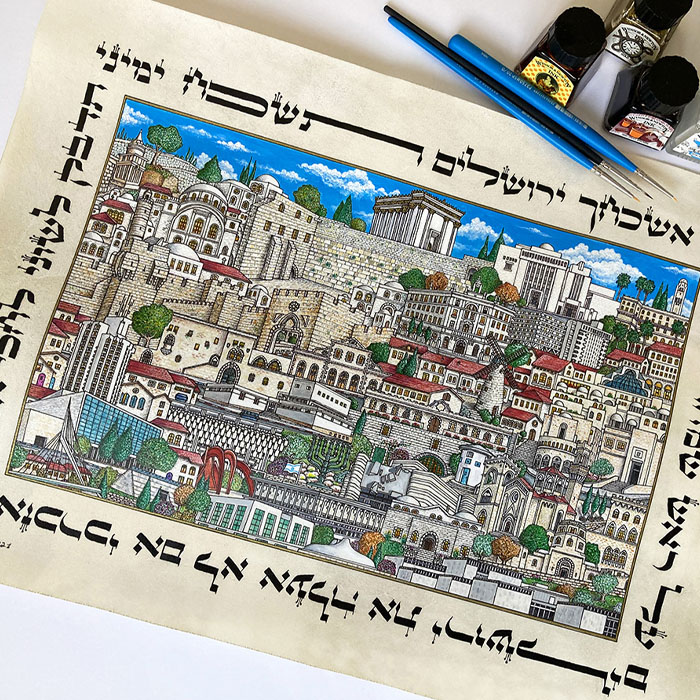 אשכחך ירושלים תשכח ימיני
תדבק לשוני לחכי
אזכרכי אם לא אעלה את ירושלים
על ראש
INK